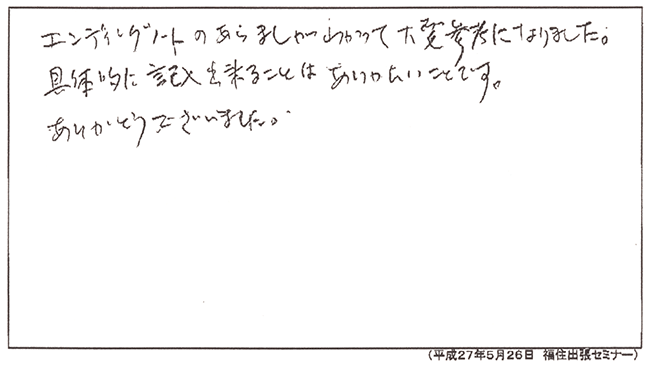 エンディングノートのあらましがわかって大変参考になりました。
具体的に記入出来ることはありがたいことです。
ありがとうございました。
(平成27年5月26日 福住出張セミナー)